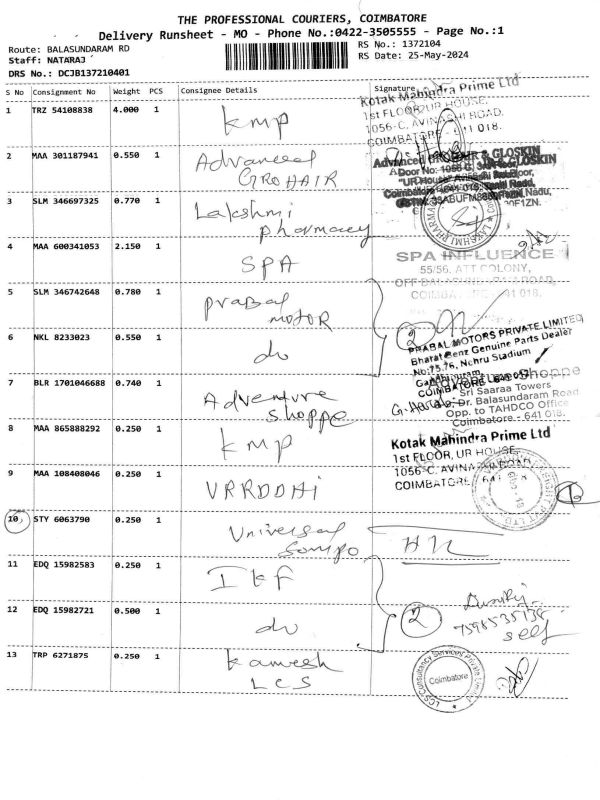 THE PROFESSIONAL COURIERS, COIMBATORE
Delivery Runsheet - MO - Phone No.:0422-3505555 - Page No.:1
Route: BALASUNDARAM RD
RS No.: 1372104
Staff: NATARAJ
RS Date: 25-May-2024
DRS No.: DCJB137210401
S No Consignment No Weight PCS Consignee Details Signature
1 TRZ 54108838 4.000 1 kmp
Kotak Mahindra Prime Ltd
1st FLOOR, UR HOUSE,
1056-C, AVINASHI ROAD,
COIMBATORE - 641 018.
2 MAA 301187941 0.550 1 Advanced
GROHAIR
Advanced GROHAIR & GLOSKIN
3 SLM 346697325 0.770 1 Lakshmi
pharmacy
LAKSHMI PHARMACY
4 MAA 600341053 2.150 1 SPA
SPA INFLUENCE
55/56, ATT COLONY,
5 SLM 346742648 0.780 1 prabal
motor
2
PRABAL MOTORS PRIVATE LIMITED
Bharat Benz Genuine Parts Dealer
No:75,76, Nehru Stadium
6 NKL 8233023 0.550 1 do
7 BLR 1701046688 0.740 1 Adventure
Shoppe
Shoppe
Sri Saaraa Towers
Dr. Balasundaram Road
Opp. to TAHDCO Office
Coimbatore - 641 018.
8 MAA 865888292 0.250 1 kmp
Kotak Mahindra Prime Ltd
1st FLOOR, UR HOUSE,
1056-C, AVINASHI ROAD,
COIMBATORE - 641 018
9 MAA 108408046 0.250 1 VRRDDHi
10 STY 6063790 0.250 1 Universal
Sompo
11 EDQ 15982583 0.250 1 IKF
12 EDQ 15982721 0.500 1 do
2
7598535138
self
13 TRP 6271875 0.250 1 kamesh
LCS
LCS Consultancy Services Private Limited
Coimbatore